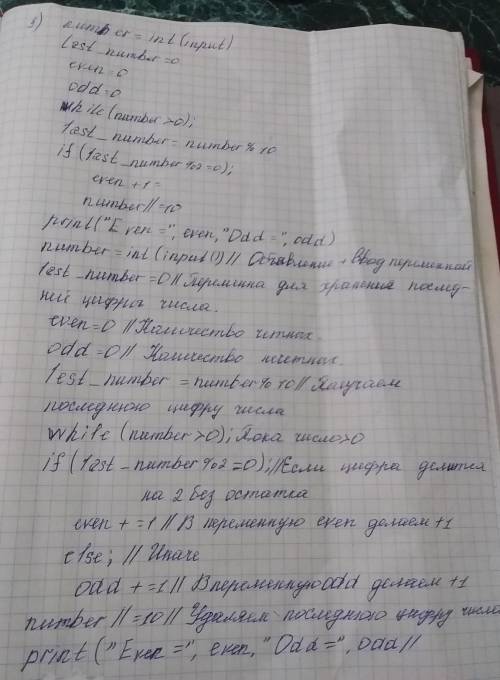 3) number = int (input)
last_number=0
even=0
odd=0
while (number >0);
last_number = number % 10
if (last_number %2=0);
even +1=
number//=10
print("Even =", even, "Odd =", odd)
number = int (input()) // Объявление + Ввод переменной
last_number =0// Переменна для хранения послед-
ней цифры числа.
even=0 // Количество четных.
odd=0 // Количество нечетных.
last_number = number % 10// Получаем
последнюю цифру числа
while (number >0); Пока число>0
if (last_number %2=0);//Если цифра делится
на 2 без остатка
even + =1 // В переменную even делаем +1
else; // Иначе
odd + =1 // В переменную odd делаем +1
number //=10 // Удаляем последнюю цифру числа
print ("Even =", even, "Odd =", odd//